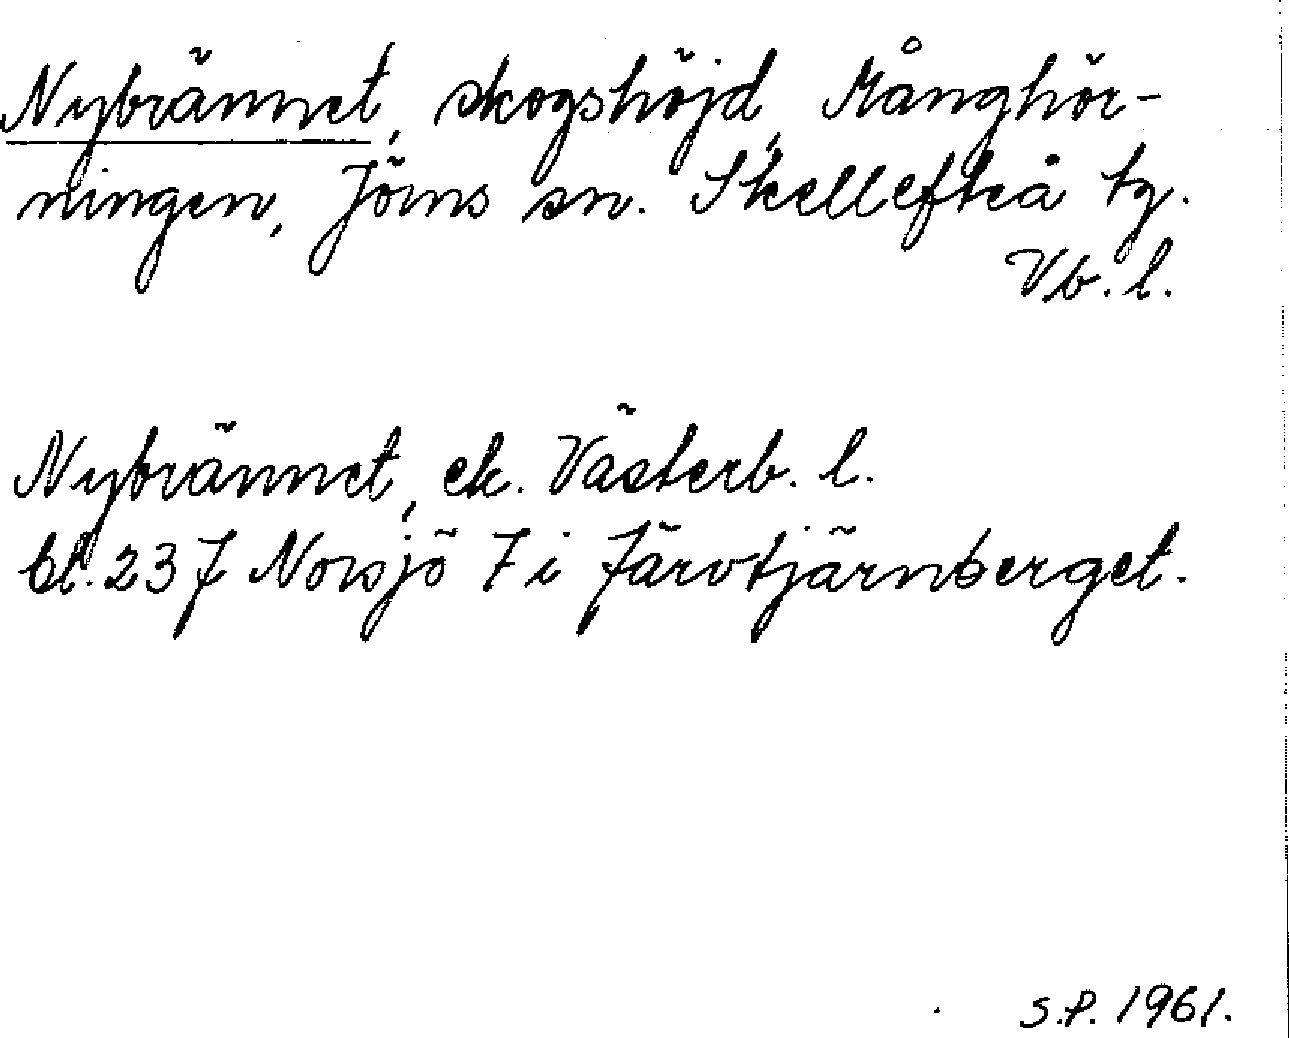 Nybrännet, skogshöjd, Månghör-
ningen, Jörns sn. Skellefteå tg.
Vb. l.
Nybrännet, ek. Västerb. l.
bl. 237 Norsjö 7 i Järvtjärnberget.
S.P. 1961.